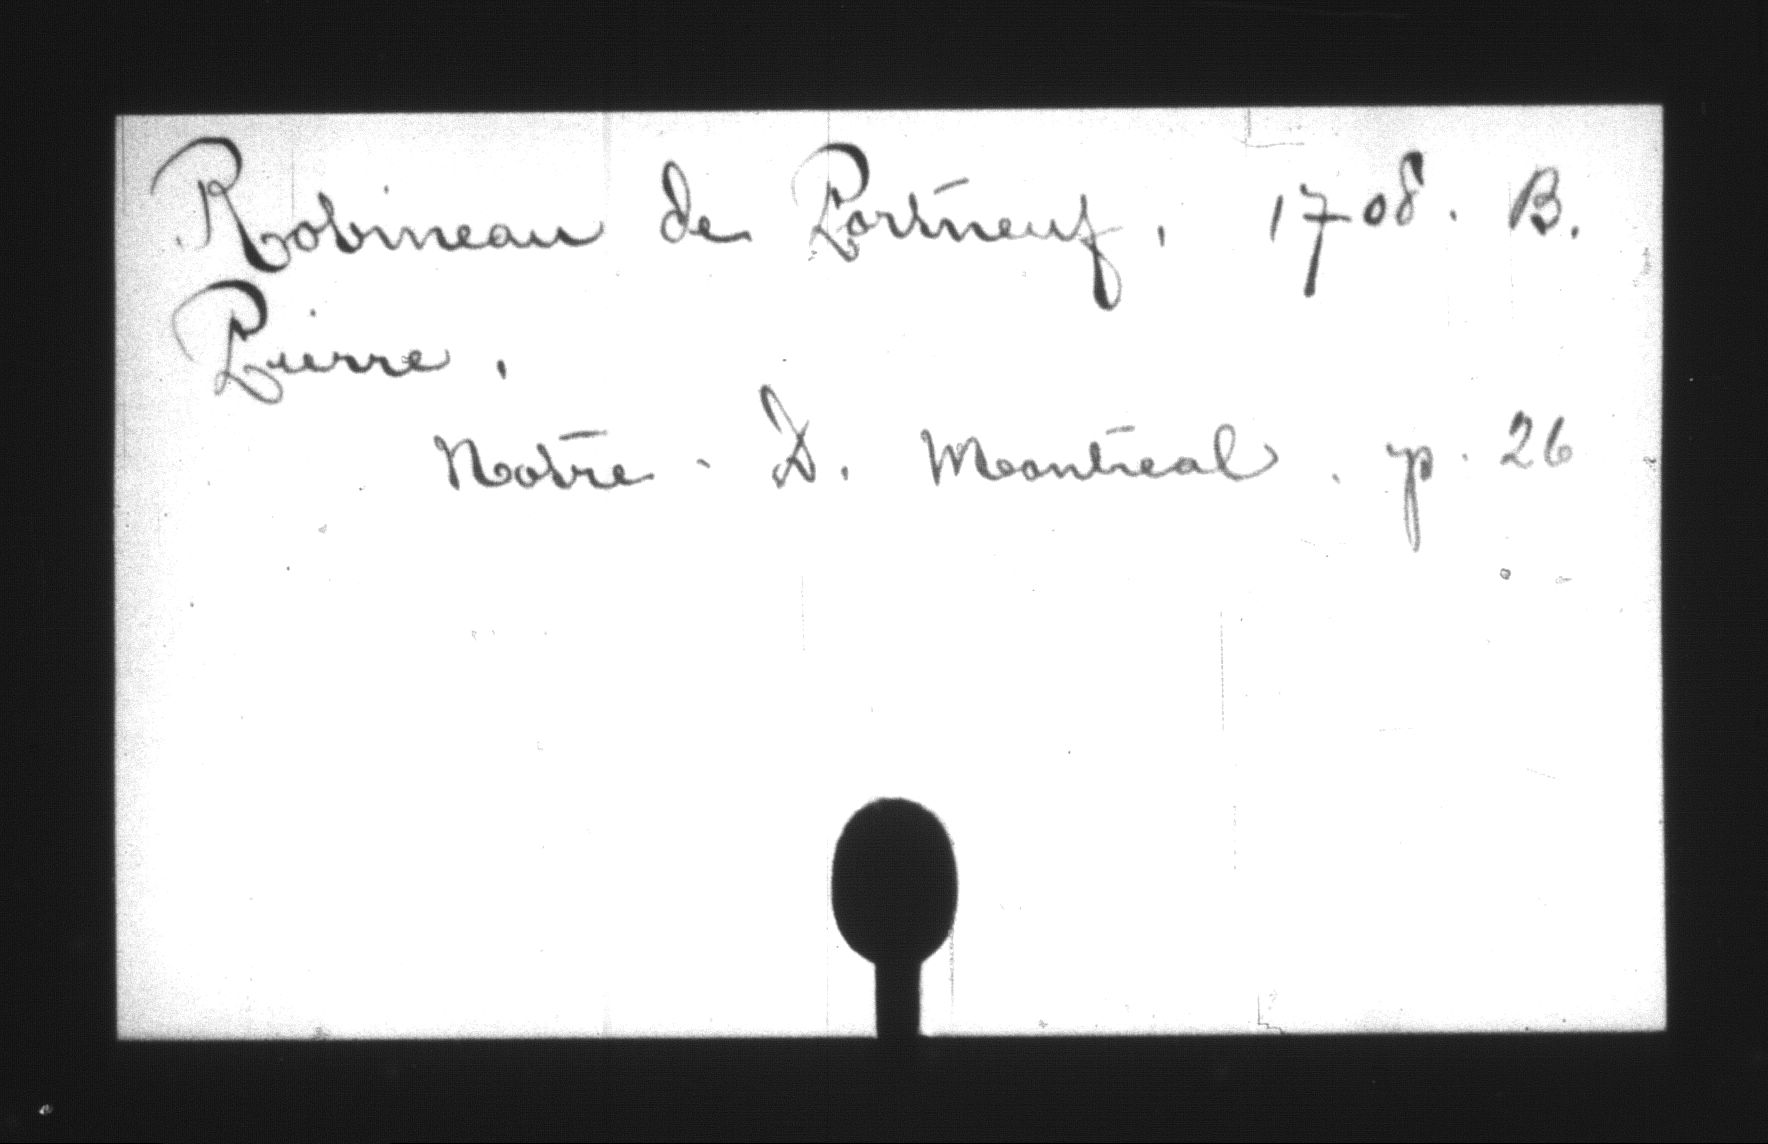 Robineau de Portneuf, 1708. B.
Pierre,
Notre-D. Montreal. p. 26